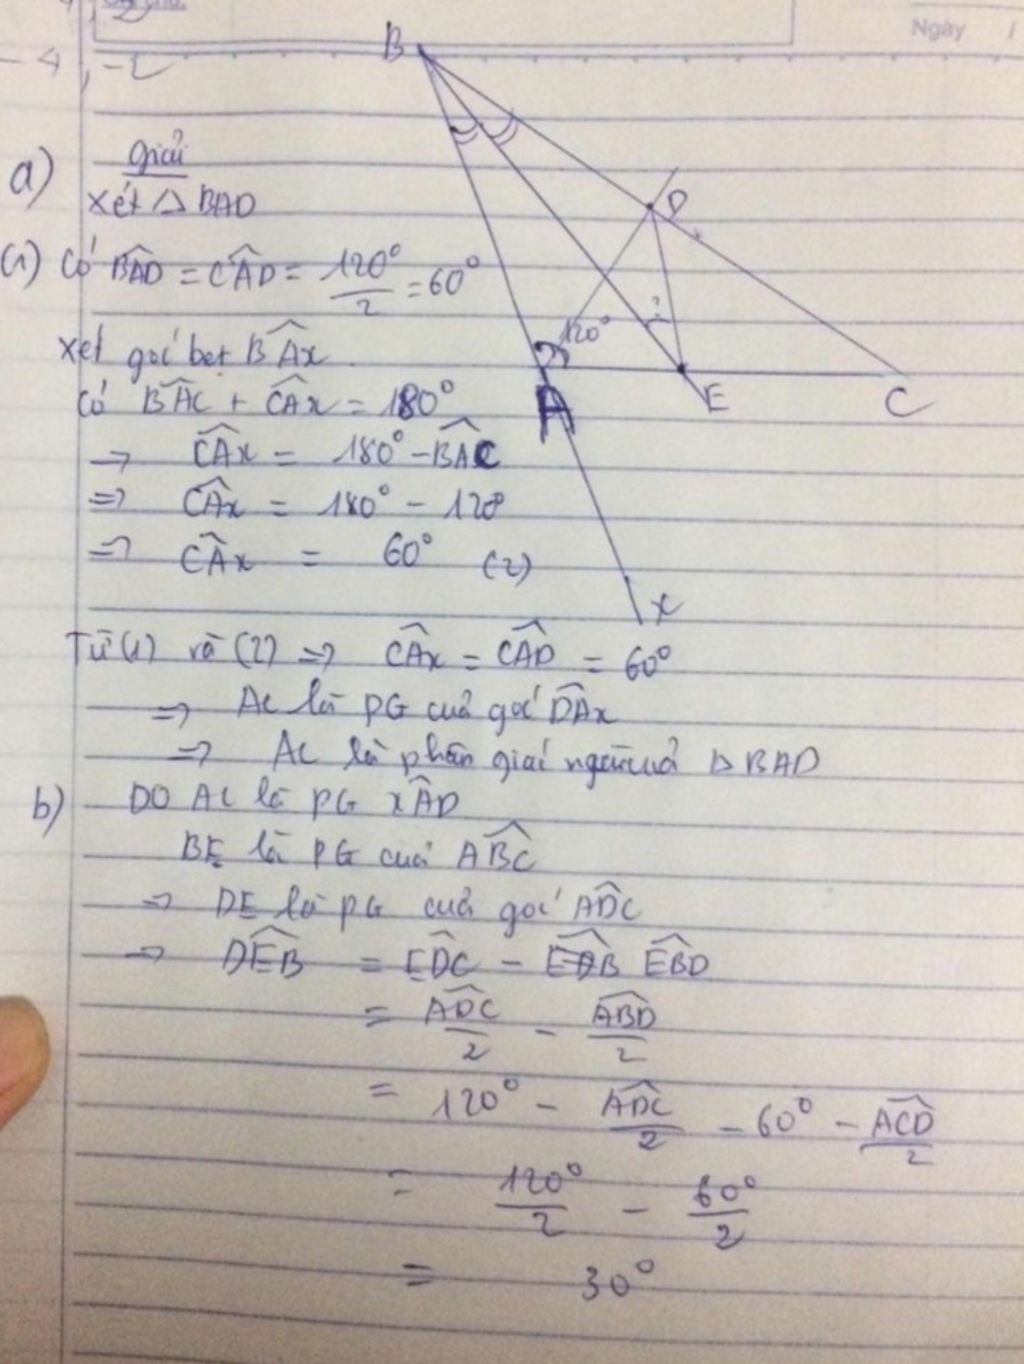 Ngày
- 4, -2
B
a) giải
xét △ BAD
(1) Có BAD = CAD = 120°/2 = 60°
D
?
120°
xét góc bẹt BAx
Có BAC + CAx = 180°
A E C
→ CAx = 180° - BAC
=> CAx = 180° - 120
=> CAx = 60° (2)
x
Từ (1) và (2) => CAx = CAD = 60°
=> AC là PG của góc DAx
=> AC là phân giác ngoài của △ BAD
b) DO AC là PG xAD
BE là PG của ABC
→ DE là PG của góc ADC
→ DEB = EDC - EBD
= ADC/2 - ABD/2
= 120° - ADC/2 - 60° - ACD/2
= 120°/2 - 60°/2
= 30°